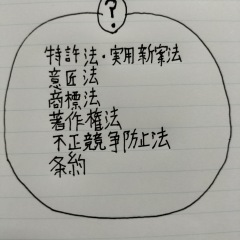 ?
特許法・実用新案法
意匠法
商標法
著作権法
不正競争防止法
条約